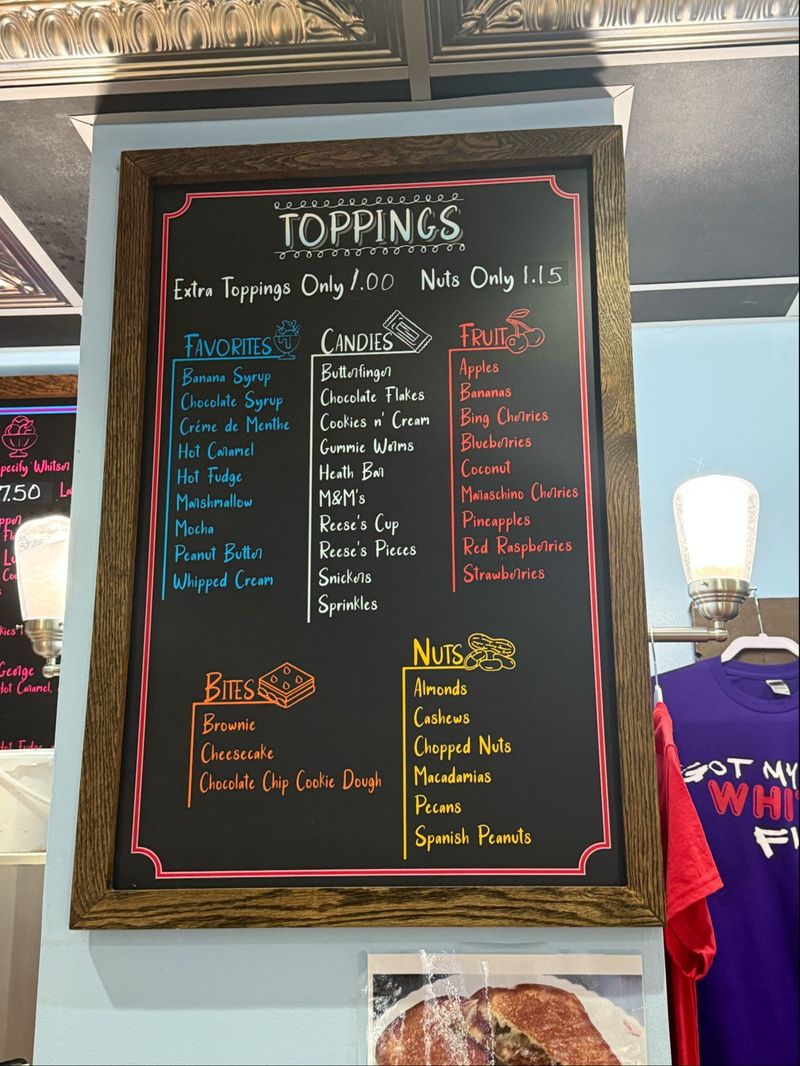 TOPPINGS
Extra Toppings Only 1.00 Nuts Only 1.15
FAVORITES
Banana Syrup
Chocolate Syrup
Créme de Menthe
Hot Caramel
Hot Fudge
Marshmallow
Mocha
Peanut Butter
Whipped Cream
CANDIES
Butterfinger
Chocolate Flakes
Cookies n' Cream
Gummie Worms
Heath Bar
M&M's
Reese's Cup
Reese's Pieces
Snickers
Sprinkles
FRUIT
Apples
Bananas
Bing Cherries
Blueberries
Coconut
Maraschino Cherries
Pineapples
Red Raspberries
Strawberries
BITES
Brownie
Cheesecake
Chocolate Chip Cookie Dough
NUTS
Almonds
Cashews
Chopped Nuts
Macadamias
Pecans
Spanish Peanuts
specify Whitson
7.50
George
Hot Caramel,
Hot Fudge
GOT MY
WHI